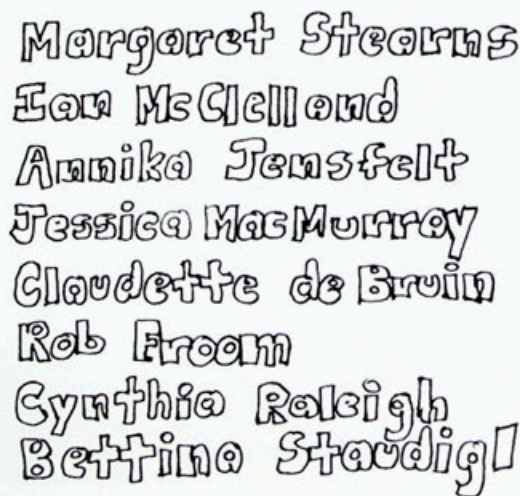 Margaret Stearns
Ian McClelland
Annika Jensfelt
Jessica MacMurray
Claudette de Bruin
Rob Froom
Cynthia Raleigh
Bettina Staudigl